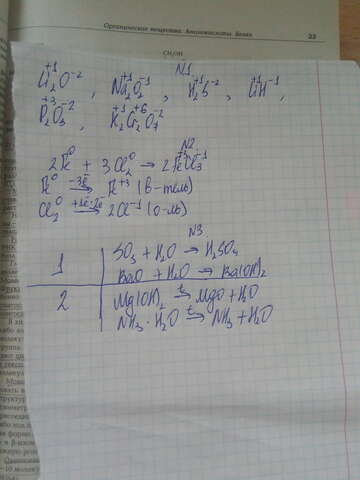 Органические вещества. Аминокислоты. Белки 23
CH₂OH
N1
Li₂⁺¹O⁻², Na₂⁺¹O₂⁻¹, H₂⁺¹S⁻², Li⁺¹H⁻¹,
P₂⁺³O₃⁻², K₂⁺¹Cr₂⁺⁶O₇⁻²
N2
2Fe⁰ + 3Cl₂⁰ → 2Fe⁺³Cl₃⁻¹
Fe⁰ -3e̅→ Fe⁺³ (в-тель)
Cl₂⁰ +1e̅·2→ 2Cl⁻¹ (о-ль)
N3
1 SO₃ + H₂O → H₂SO₄
BaO + H₂O → Ba(OH)₂
2 Mg(OH)₂ t→ MgO + H₂O
NH₃·H₂O t→ NH₃ + H₂O